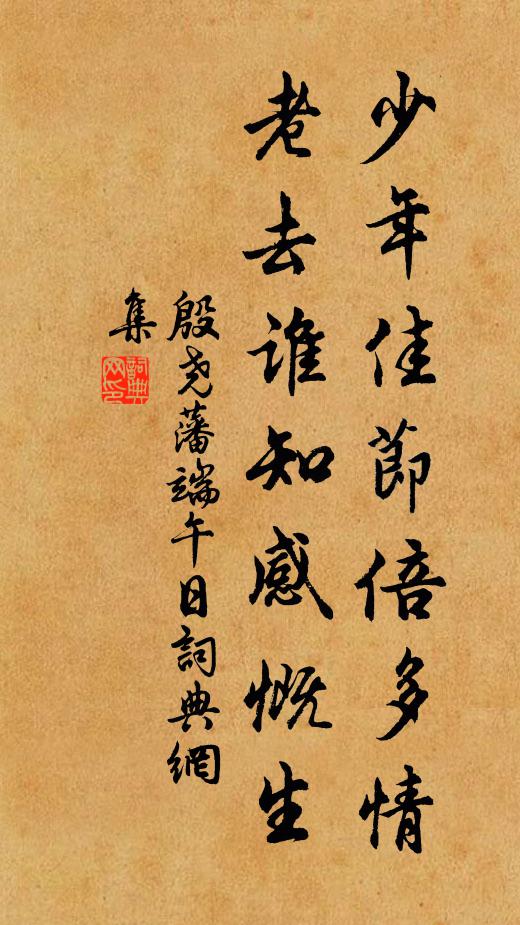 少年佳節倍多情
老去誰知感慨生
殷堯藩端午日詞典網
集
詞典
网印